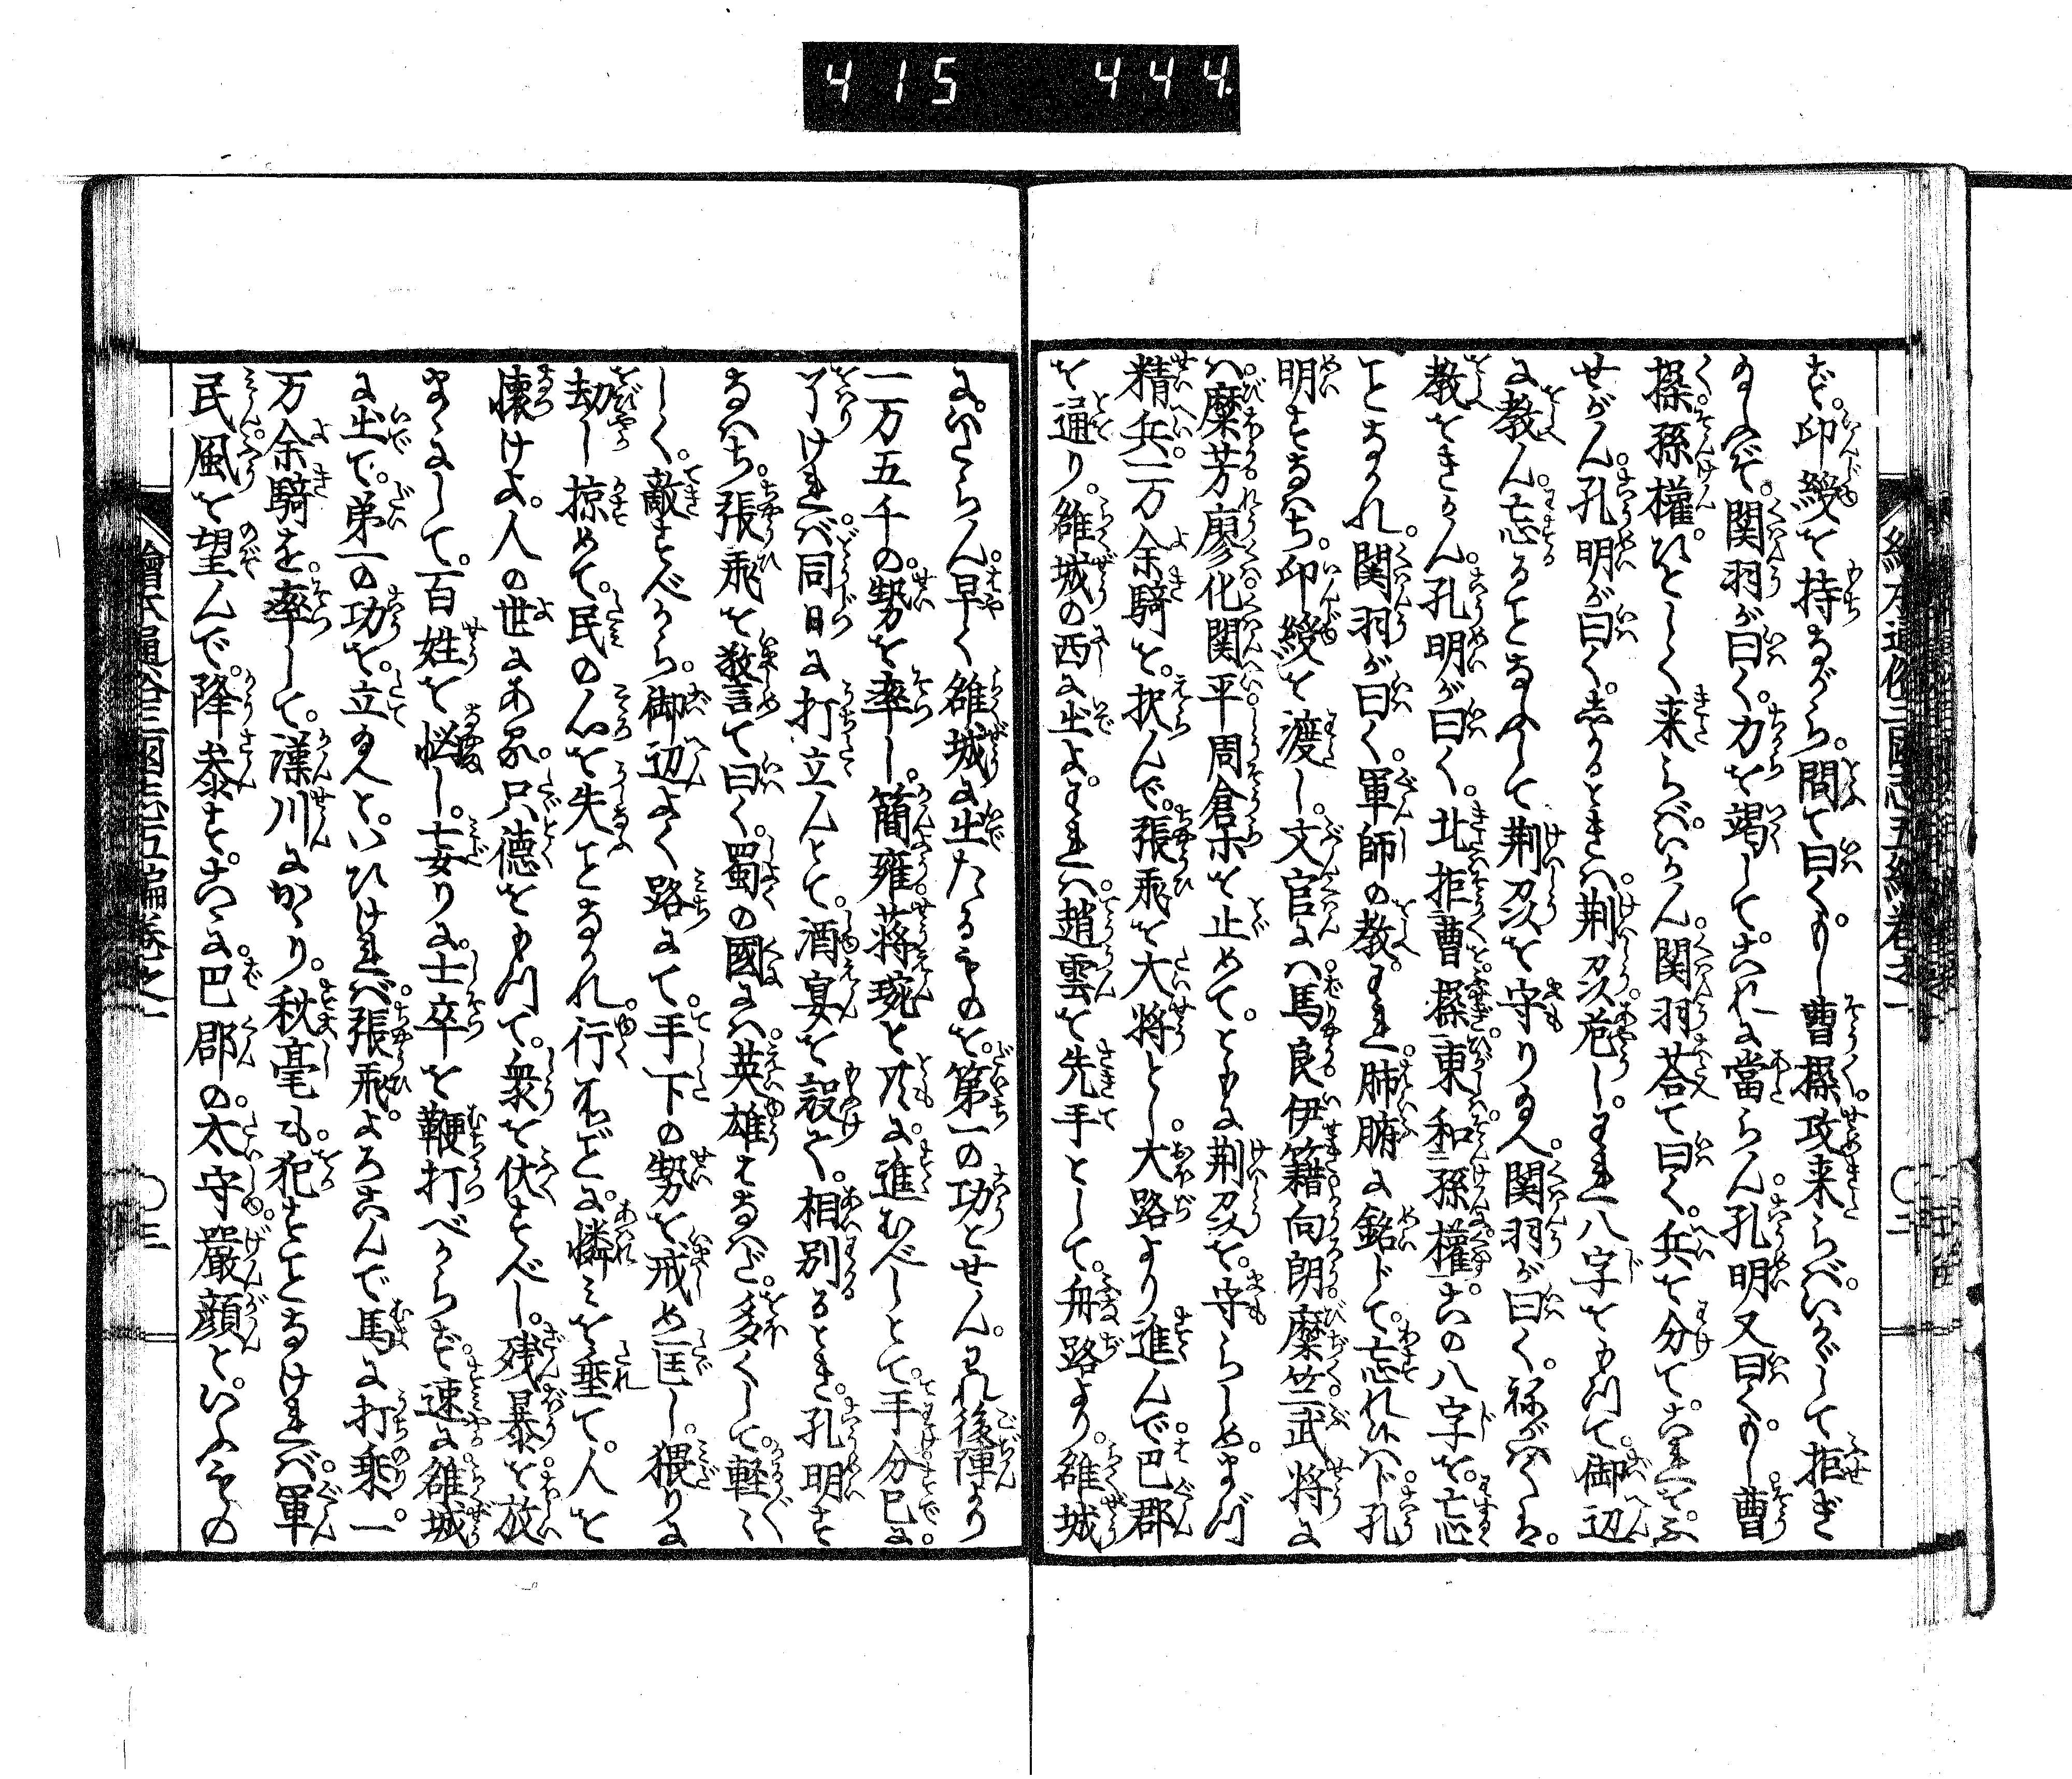 415 444.
ず。印綬を持ながら。問て曰く。もし曹操攻来らば。いかゞして拒ぎ
給ふぞ。関羽が曰く。力を竭してこれに當らん。孔明又曰く。もし曹
操孫權。ひとしく来らばいかん。関羽荅て曰く。兵を分てこれをふ
せがん。孔明が曰く。しかるときは。荆及危し。われ八字をもつて。御辺
に教ん。忘るゝことなふして荆及を守り給へ。関羽が曰く。祢がはくは。
教をきかん。孔明が曰く。北拒曹操東和孫權。この八字を。忘るゝ
ことなかれ。関羽が曰く。軍師の教。われ肺腑に銘じて。忘れ候はじ。孔
明すなはち。印綬を渡し。文官には。馬良。伊籍。向朗。糜竺。武将に
は。糜芳。廖化。関平。周倉等を止めて。ともに荆及を。守らしめ。まづ
精兵。一万余騎を。択んで。張飛を大将とし。大路より進んで。巴郡
を通り。雒城の西に出よ。われは。趙雲を先手として。舟路より。雒城
に。いたらん。早く雒城に出たるものを。第一の功とせん。われ後陣より
一万五千の。勢を率し。簡雍。蒋琬と共に。進むべしとて。手分已に。
了ければ。同日に打立んとて。酒宴を設く。相別るゝとき。孔明す
なはち。張飛を警て曰く。蜀の國には。英雄はなはだ。多くして。軽〳〵
しく。敵すべからず。御辺よく路にて。手下の勢を。戒め匡し。猥りに
劫し掠めて。民の心を失ことなかれ。行ほどに。憐みを垂て。人を
懐けよ。人の世にある。只徳をもつて。衆を伏すべし。残暴を放
まゝにして。百姓を悩し。妄りに。士卒を鞭打べからず。速に雒城
に出で。第一の功を。立給へと。いひければ。張飛。よろこんで馬に打乗。一
万余騎を。率して。漢川にかゝり。秋毫も犯すことなければ。軍
民風を望んで。降参す。こゝに巴郡の。太守嚴顔と。いふもの
繪本通俗三國志五編巻之一
〇三